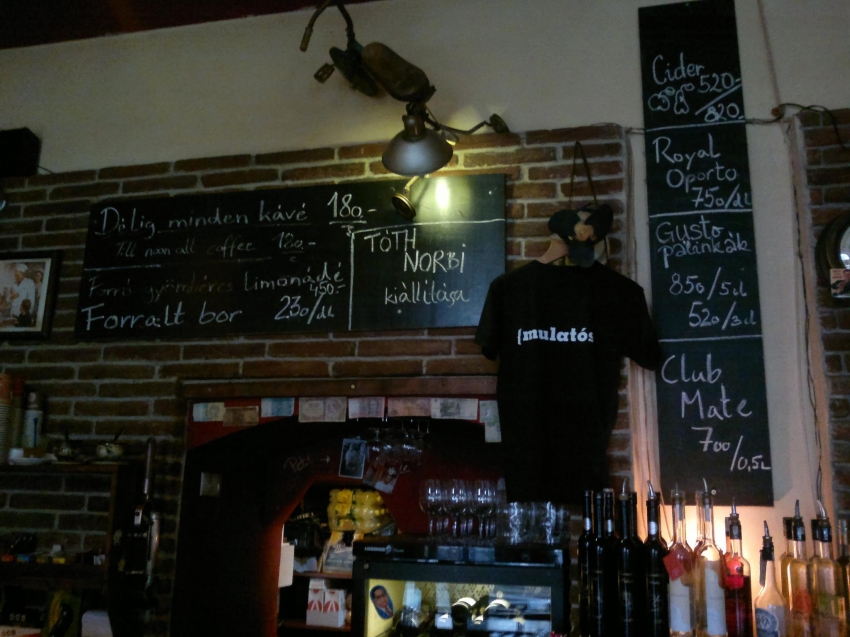 Délig minden kávé 180.-
Till noon all coffee 180.-
Forró gyömbéres limonádé
450.-
Forralt bor 230/dl
TÓTH
NORBI
kiállítása
(mulatós
Cider 520.-
/820.-
Royal
Oporto
750/dl
Gusto
pálinkák
850/5cl
520/3cl
Club
Mate
700/0,5L